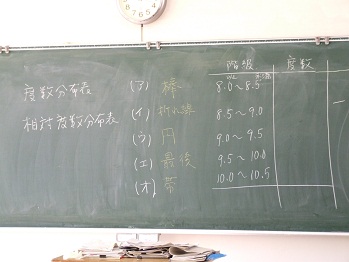 度数分布表
相対度数分布表
(ア) 棒
(イ) 折れ線
(ウ) 円
(エ) 最後
(オ) 帯
階級 度数
以上 未満
8.0～8.5
8.5～9.0
9.0～9.5
9.5～10.0
10.0～10.5